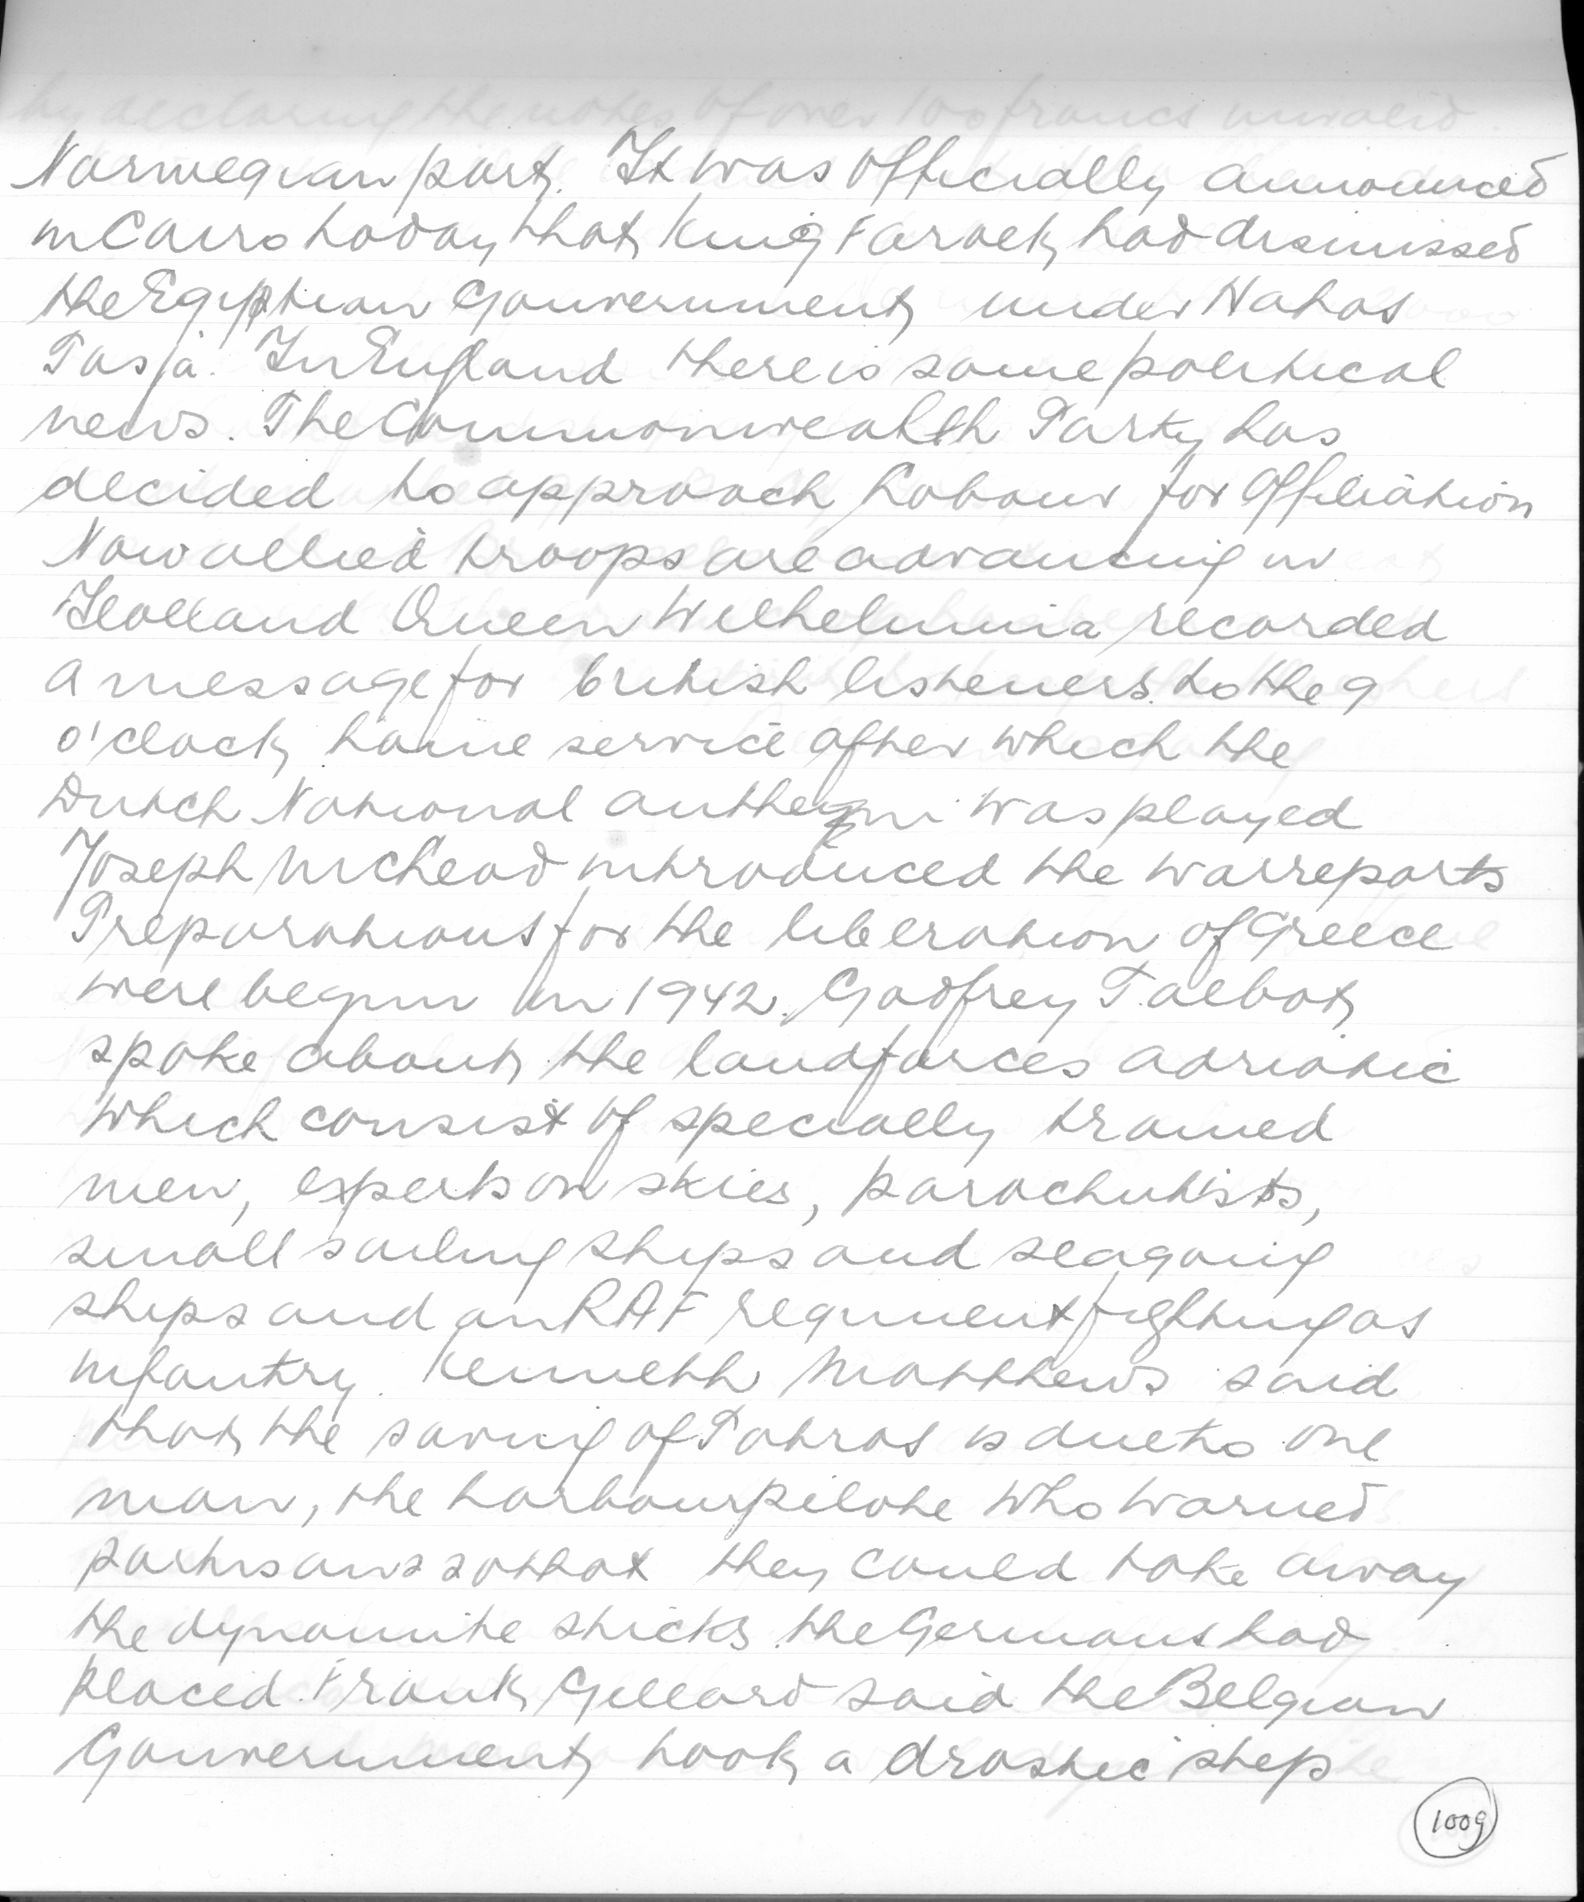 by declaring the notes of over 100 francs unvalid.
Norwegian port. It was officially announced
in Cairo today that King Farock had dismissed
the Egiptian Gouvernment under Nahas
Pasja. In England there is some political
news. The Commonwealth Party has
decided to approach Labour for affiliation
Now allied troops are advancing in
Holland Queen Wilhelmina recorded
a message for british listeners to the 9
o'clock home service after which the
Dutch National anthem was played
Joseph McLeod introduced the warreports
Preparations for the liberation of Greece
were begun in 1942. Godfrey Talbot
spoke about the landforces adriatic
which consist of specially trained
men, experts on skies, parachutists,
small sailing ships and seagoing
ships and an RAF regiment fighting as
infantry. Kenneth Matthews said
that the saving of Patras is due to one
man, the harbourpilote who warned
partisans so that they could take away
the dynamite sticks the Germans had
placed. Frank Gillard said the Belgian
Gouvernment took a drastic step
1009